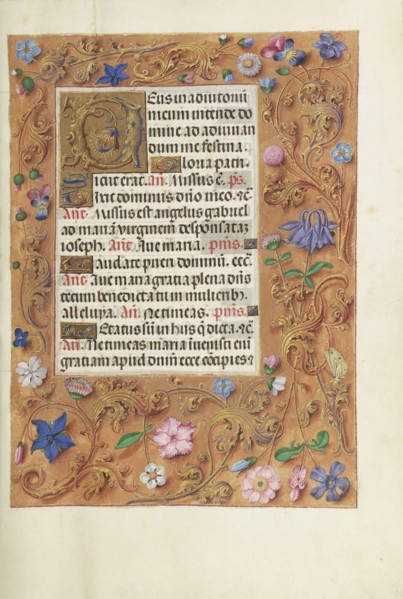 Deus in adiutoriū
meum intende do
mine ad adiuuan
dum me festina.
Gloria patri.
Sicut erat. añ. Missus ē. ps.
Dixit dominus dño meo. ⁊c̄.
Añt. Missus est angelus gabriel
ad mariā virginem desponsatā
ioseph. Añt. Aue maria. psmus.
Laudate pueri dominū. ecē.
Añt. Aue maria gratia plena dñs
tecum benedicta tu in mulierib9
alleluya. Añ. Ne timeas. psmus.
Letatus sū in hus q̄ dicta. ⁊c̄.
Añ. Ne timeas maria inuenisti eni
gratiam apud dnm ecce ⁊cipies ⁊